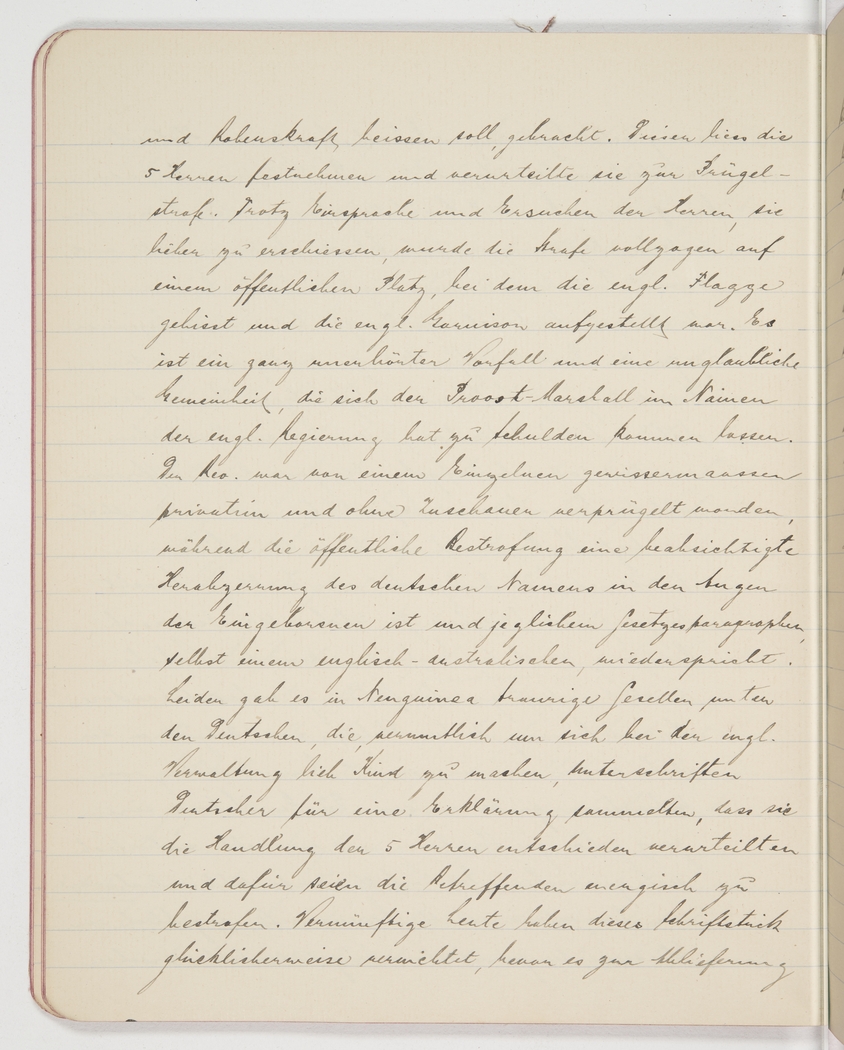 und Rabenskraft heissen soll, gebracht. Dieser liess die
5 Herren festnehmen und verurteilte sie zur Prügel-
strafe. Trotz Einsprache und Ersuchen der Herren, sie
lieber zu erschiessen, wurde die Strafe vollzogen auf
einem öffentlichen Platz, bei dem die engl. Flagge
gehisst und die engl. Garnison aufgestellt war. Es
ist ein ganz unerhörter Vorfall und eine unglaubliche
Gemeinheit, die sich der Provost-Marshall im Namen
der engl. Regierung hat zu Schulden kommen lassen.
Der Rev. war von einem Einzelnen gewissermaassen
privatim und ohne Zuschauer verprügelt worden,
während die öffentliche Bestrafung eine beabsichtigte
Herabzerrung des deutschen Namens in den Augen
der Eingeborenen ist und jeglichem Gesetzesparagraphen,
selbst einem englisch-australischen, wiederspricht.
Leider gab es in Neuguinea traurige Gesellen unter
den Deutschen, die, vermutlich um sich bei der engl.
Verwaltung lieb Kind zu machen, Unterschriften
Deutscher für eine Erklärung sammelten, dass sie
die Handlung der 5 Herren entschieden verurteilten
und dafür seien die Betreffenden energisch zu
bestrafen. Vernünftige Leute haben dieses Schriftstück
glücklicherweise vernichtet, bevor es zur Ablieferung